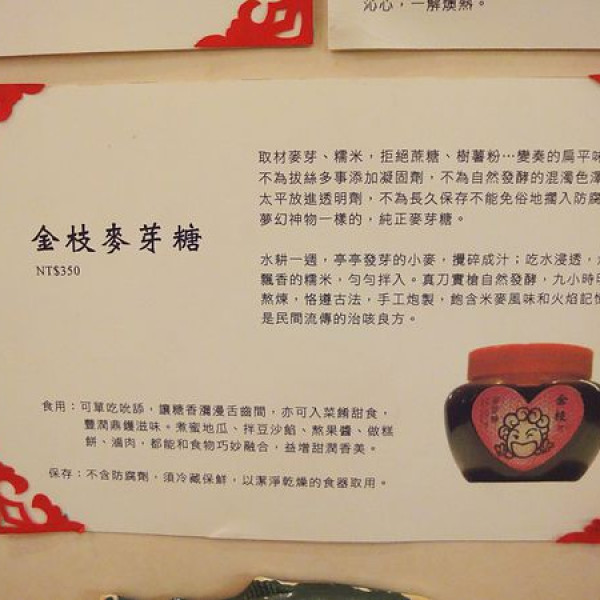 沁心，一解燠熱。
金枝麥芽糖
NT$350
取材麥芽、糯米，拒絕蔗糖、樹薯粉…變奏的扁平味
不為拔絲多事添加凝固劑，不為自然發酵的混濁色澤
太平放進透明劑，不為長久保存不能免俗地摻入防腐
夢幻神物一樣的，純正麥芽糖。
水耕一週，亭亭發芽的小麥，攪碎成汁；吃水浸透，
飄香的糯米，勻勻拌入。真刀實槍自然發酵，九小時
熬煉，恪遵古法，手工炮製，飽含米麥風味和火焰記憶
是民間流傳的治咳良方。
食用：可單吃吮舔，讓糖香瀰漫舌齒間，亦可入菜餚甜食，
豐潤鼎鑊滋味。煮蜜地瓜、拌豆沙餡、熬果醬、做糕
餅、滷肉，都能和食物巧妙融合，益增甜潤香美。
保存：不含防腐劑，須冷藏保鮮，以潔淨乾燥的食器取用。
金枝